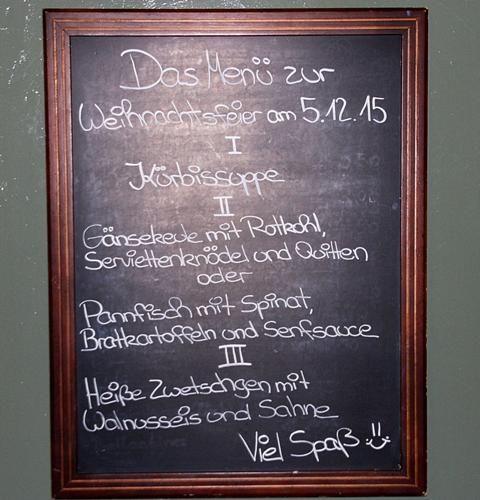 Das Menü zur
Weihnachtsfeier am 5.12.15
I
Kürbissuppe
II
Gänsekeule mit Rotkohl,
Serviettenknödel und Quitten
oder
Pannfisch mit Spinat,
Bratkartoffeln und Senfsauce
III
Heiße Zwetschgen mit
Walnusseis und Sahne
Viel Spaß